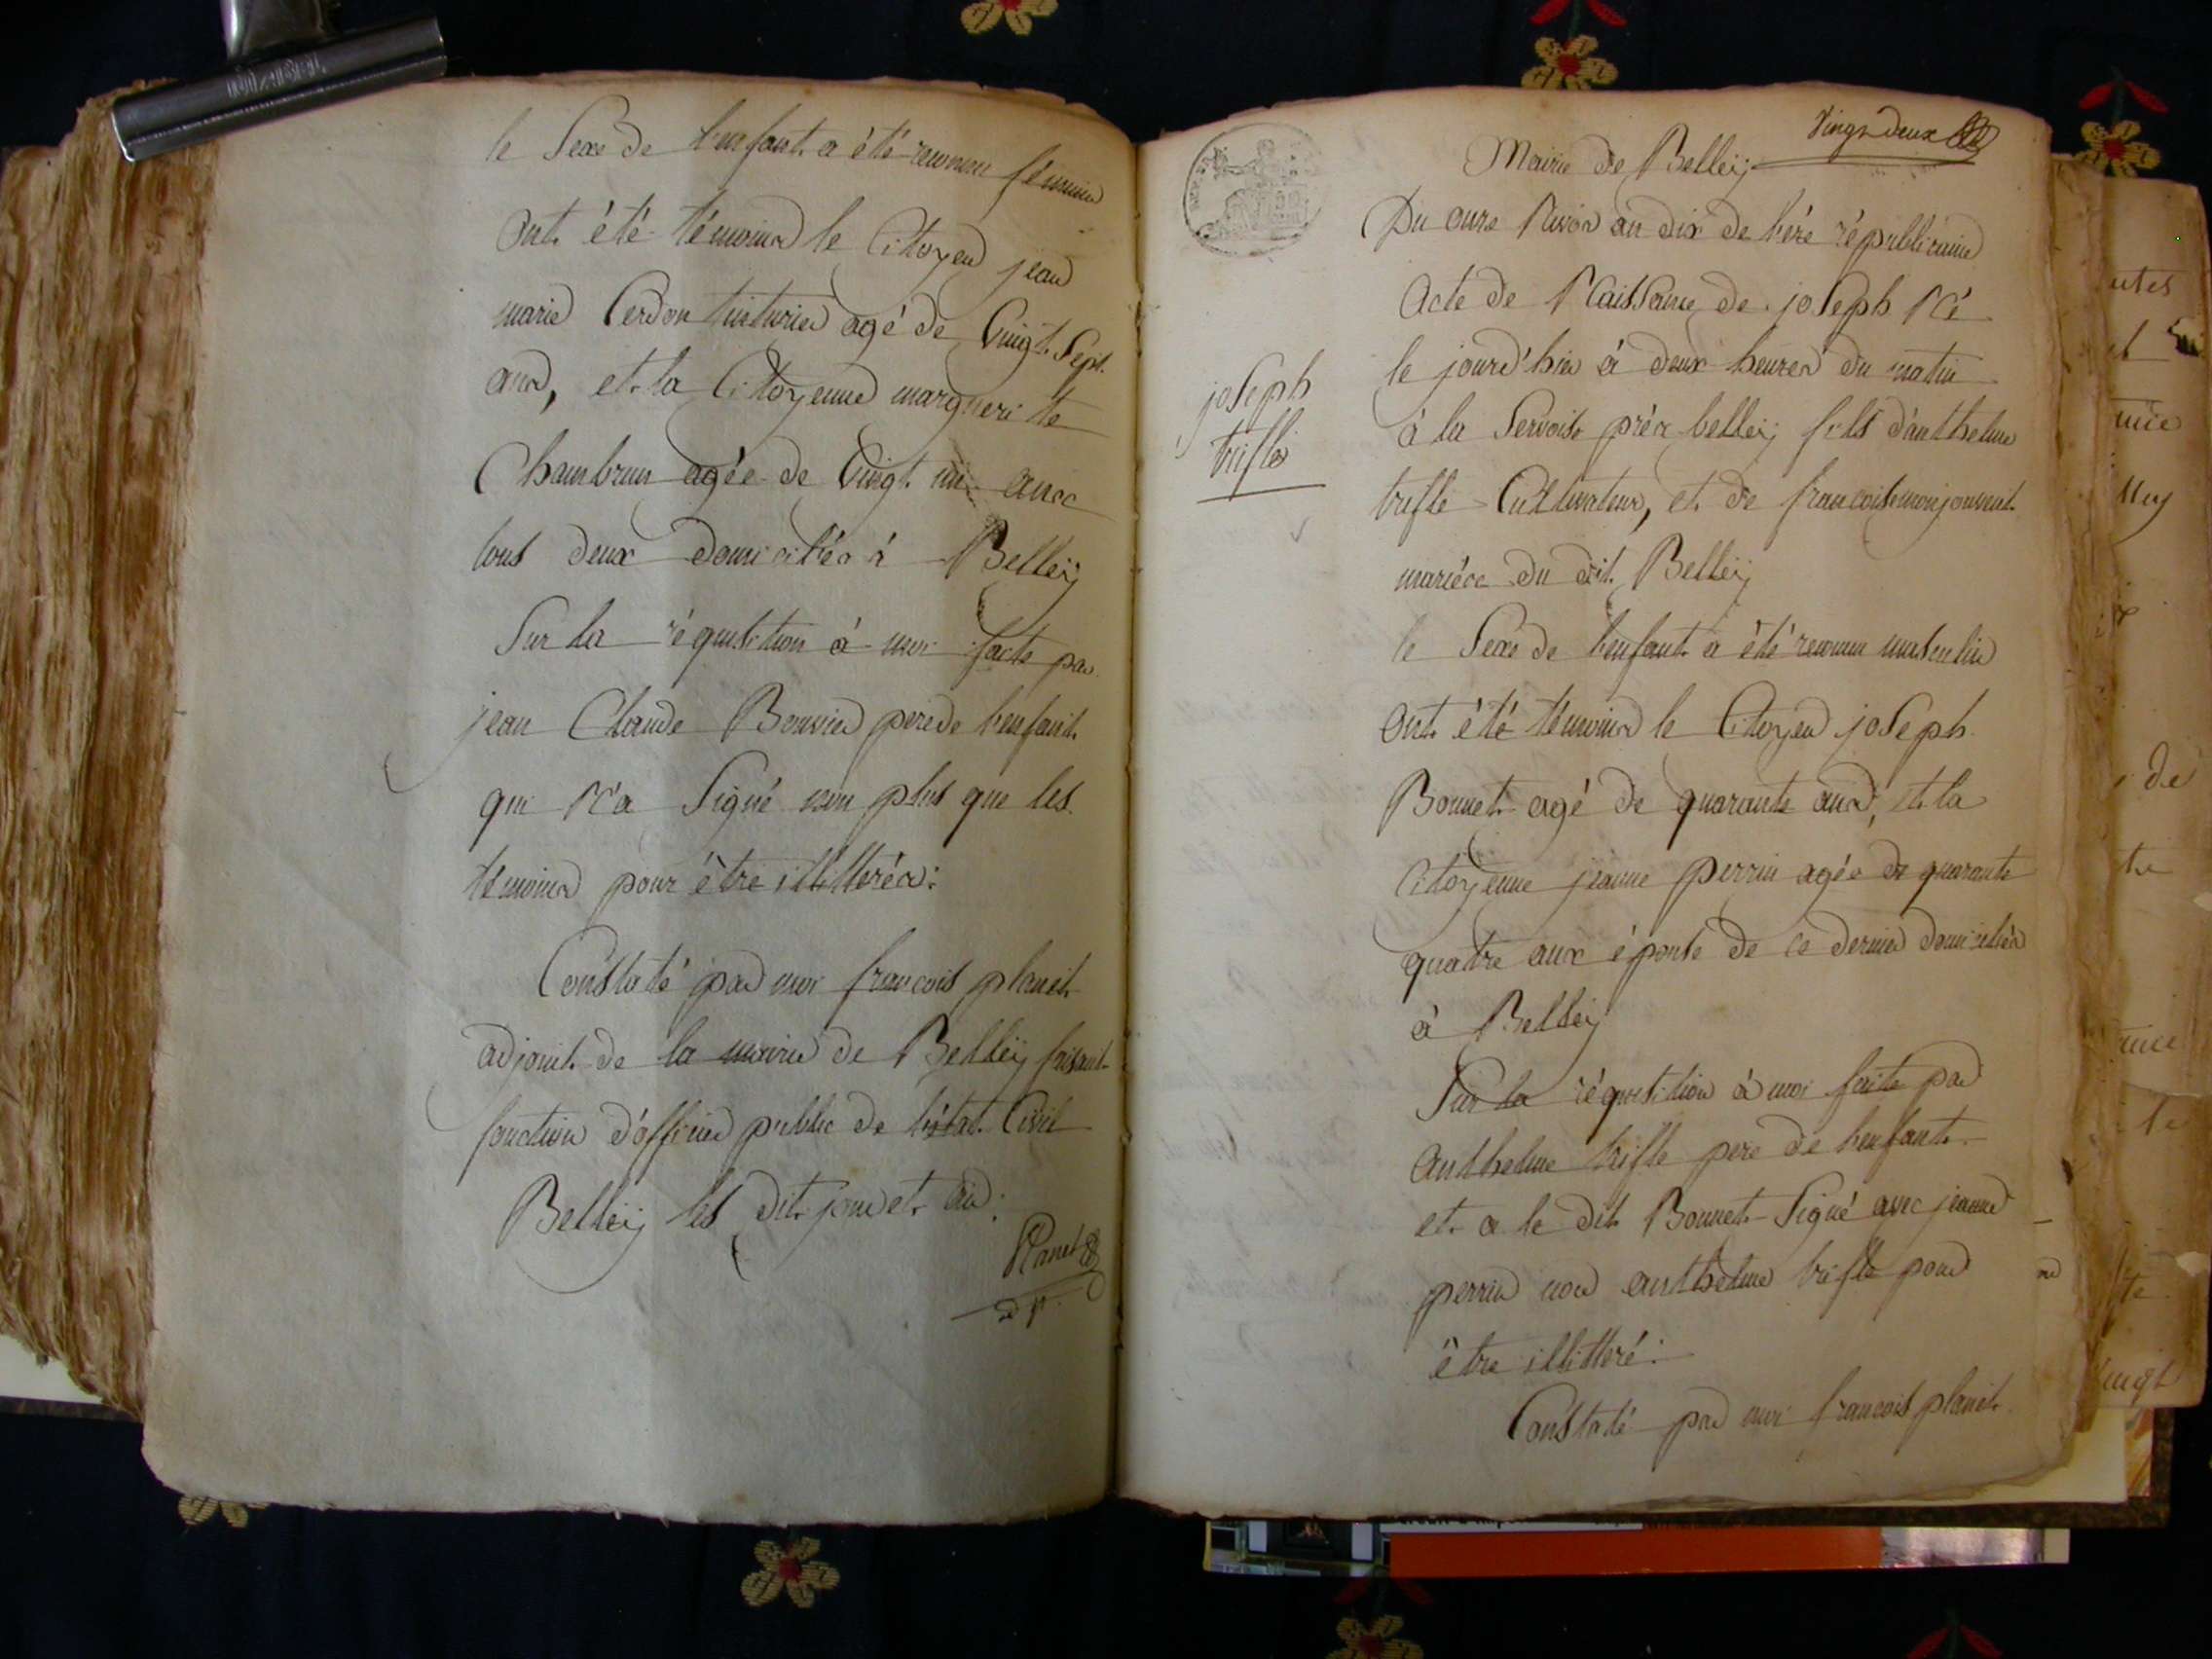 le Sexe de l'enfant a été reconnu féminin
Ont été témoins le Citoyen jean
marie Cerdon tinturier agé de Vingt Sept
ans, et la Citoyenne marguerite
Chambrun agée de Vingt un ans
tous deux domiciliés à Belleÿ
Sur la réquisition à moi facte par
jean Claude Bouvier pere de l'enfant
qui N'a Signé non plus que les
témoins pour être illittérés:
Constaté par moi francois planet
adjoint de la mairie de Belleÿ faisant
fonction d'officier public de l'état Civil
Belleÿ les dit jour et an:
Planet
Vingt deux
Mairie de Belleÿ
Du onze Nivôs an dix de l'ére républicaine
Acte de Naissance de joSeph Né
le jourd'hier à deux heures du matin
joSeph
trifle
à la Servoise près belleÿ fils d'anthelme
trifle Cultivateur, et de francoise monjouvent
mariés du dit Belleÿ
le Sexe de l'enfant a été reconnu masculin
Ont été témoins le Citoyen joSeph
Bonnet agé de quarante ans, et la
Citoyenne jeanne perrin agée de quarante
quatre ans épouse de ce dernier domiciliés
à Belleÿ
Sur la réquisition à moi faite par
Anthelme trifle pere de l'enfant
et a le dit Bonnet Signé avec jeanne
perrin non anthelme trifle pour
être illittéré:
Constaté par moi francois planet
de
le
vingt